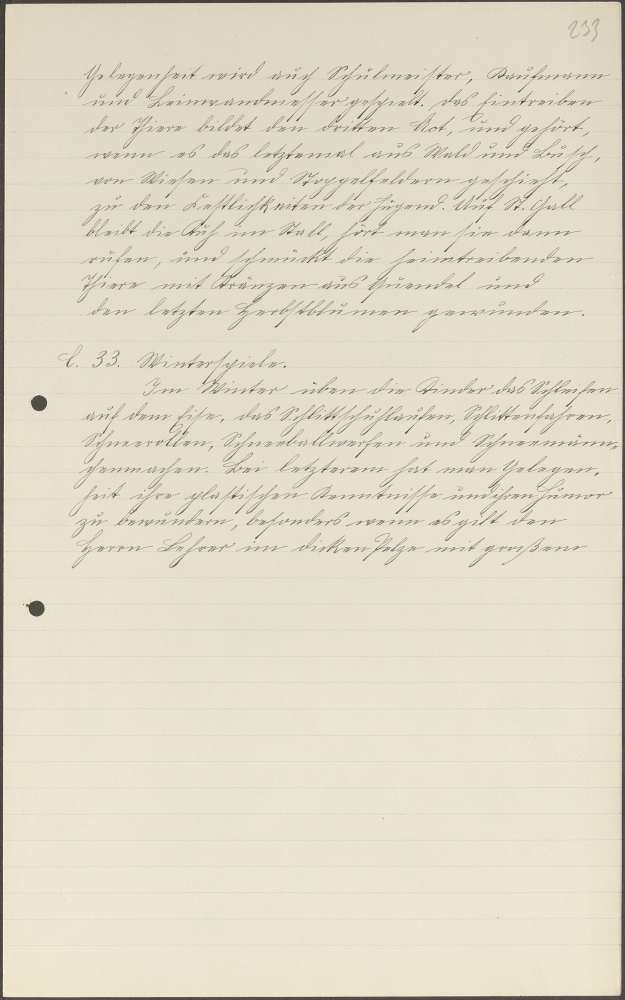 233
Gelegenheit wird auch Schulmeister, Kaufmann
und Leinwandmesser gespielt. Das Eintreiben
der Thiere bildet den dritten Akt, und gehört,
wenn es das letztemal aus Wald und Busch,
von Wiesen und Stoppelfeldern geschieht,
zu den Festlichkeiten der Jugend. Auf St. Gall
bleibt die Kuh im Stall, hört man sie dann
rufen, und schmückt die heimtreibenden
Thiere mit Kränzen aus Quendel und
den letzten Herbstblumen gewunden.
C. 33. Winterspiele.
Im Winter üben die Kinder das Schleifen
auf dem Eise, das Schlittschuhlaufen, Schlittenfahren,
Schneerollen, Schneeballwerfen und Schneemänn-
chenmachen. Bei letzterem hat man Gelegen-
heit ihre plastischen Kenntnisse und ihren Humor
zu bewundern, besonders wenn es gilt den
Herrn Lehrer im dicken Pelze mit großem